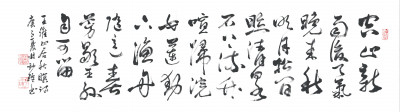 空山新
雨後天氣
晚来秋
明月松间
照清泉
石上流竹
喧歸浣
女蓮動
下漁舟
随意春
芳歇王孙
自可留
王維山居秋暝詩